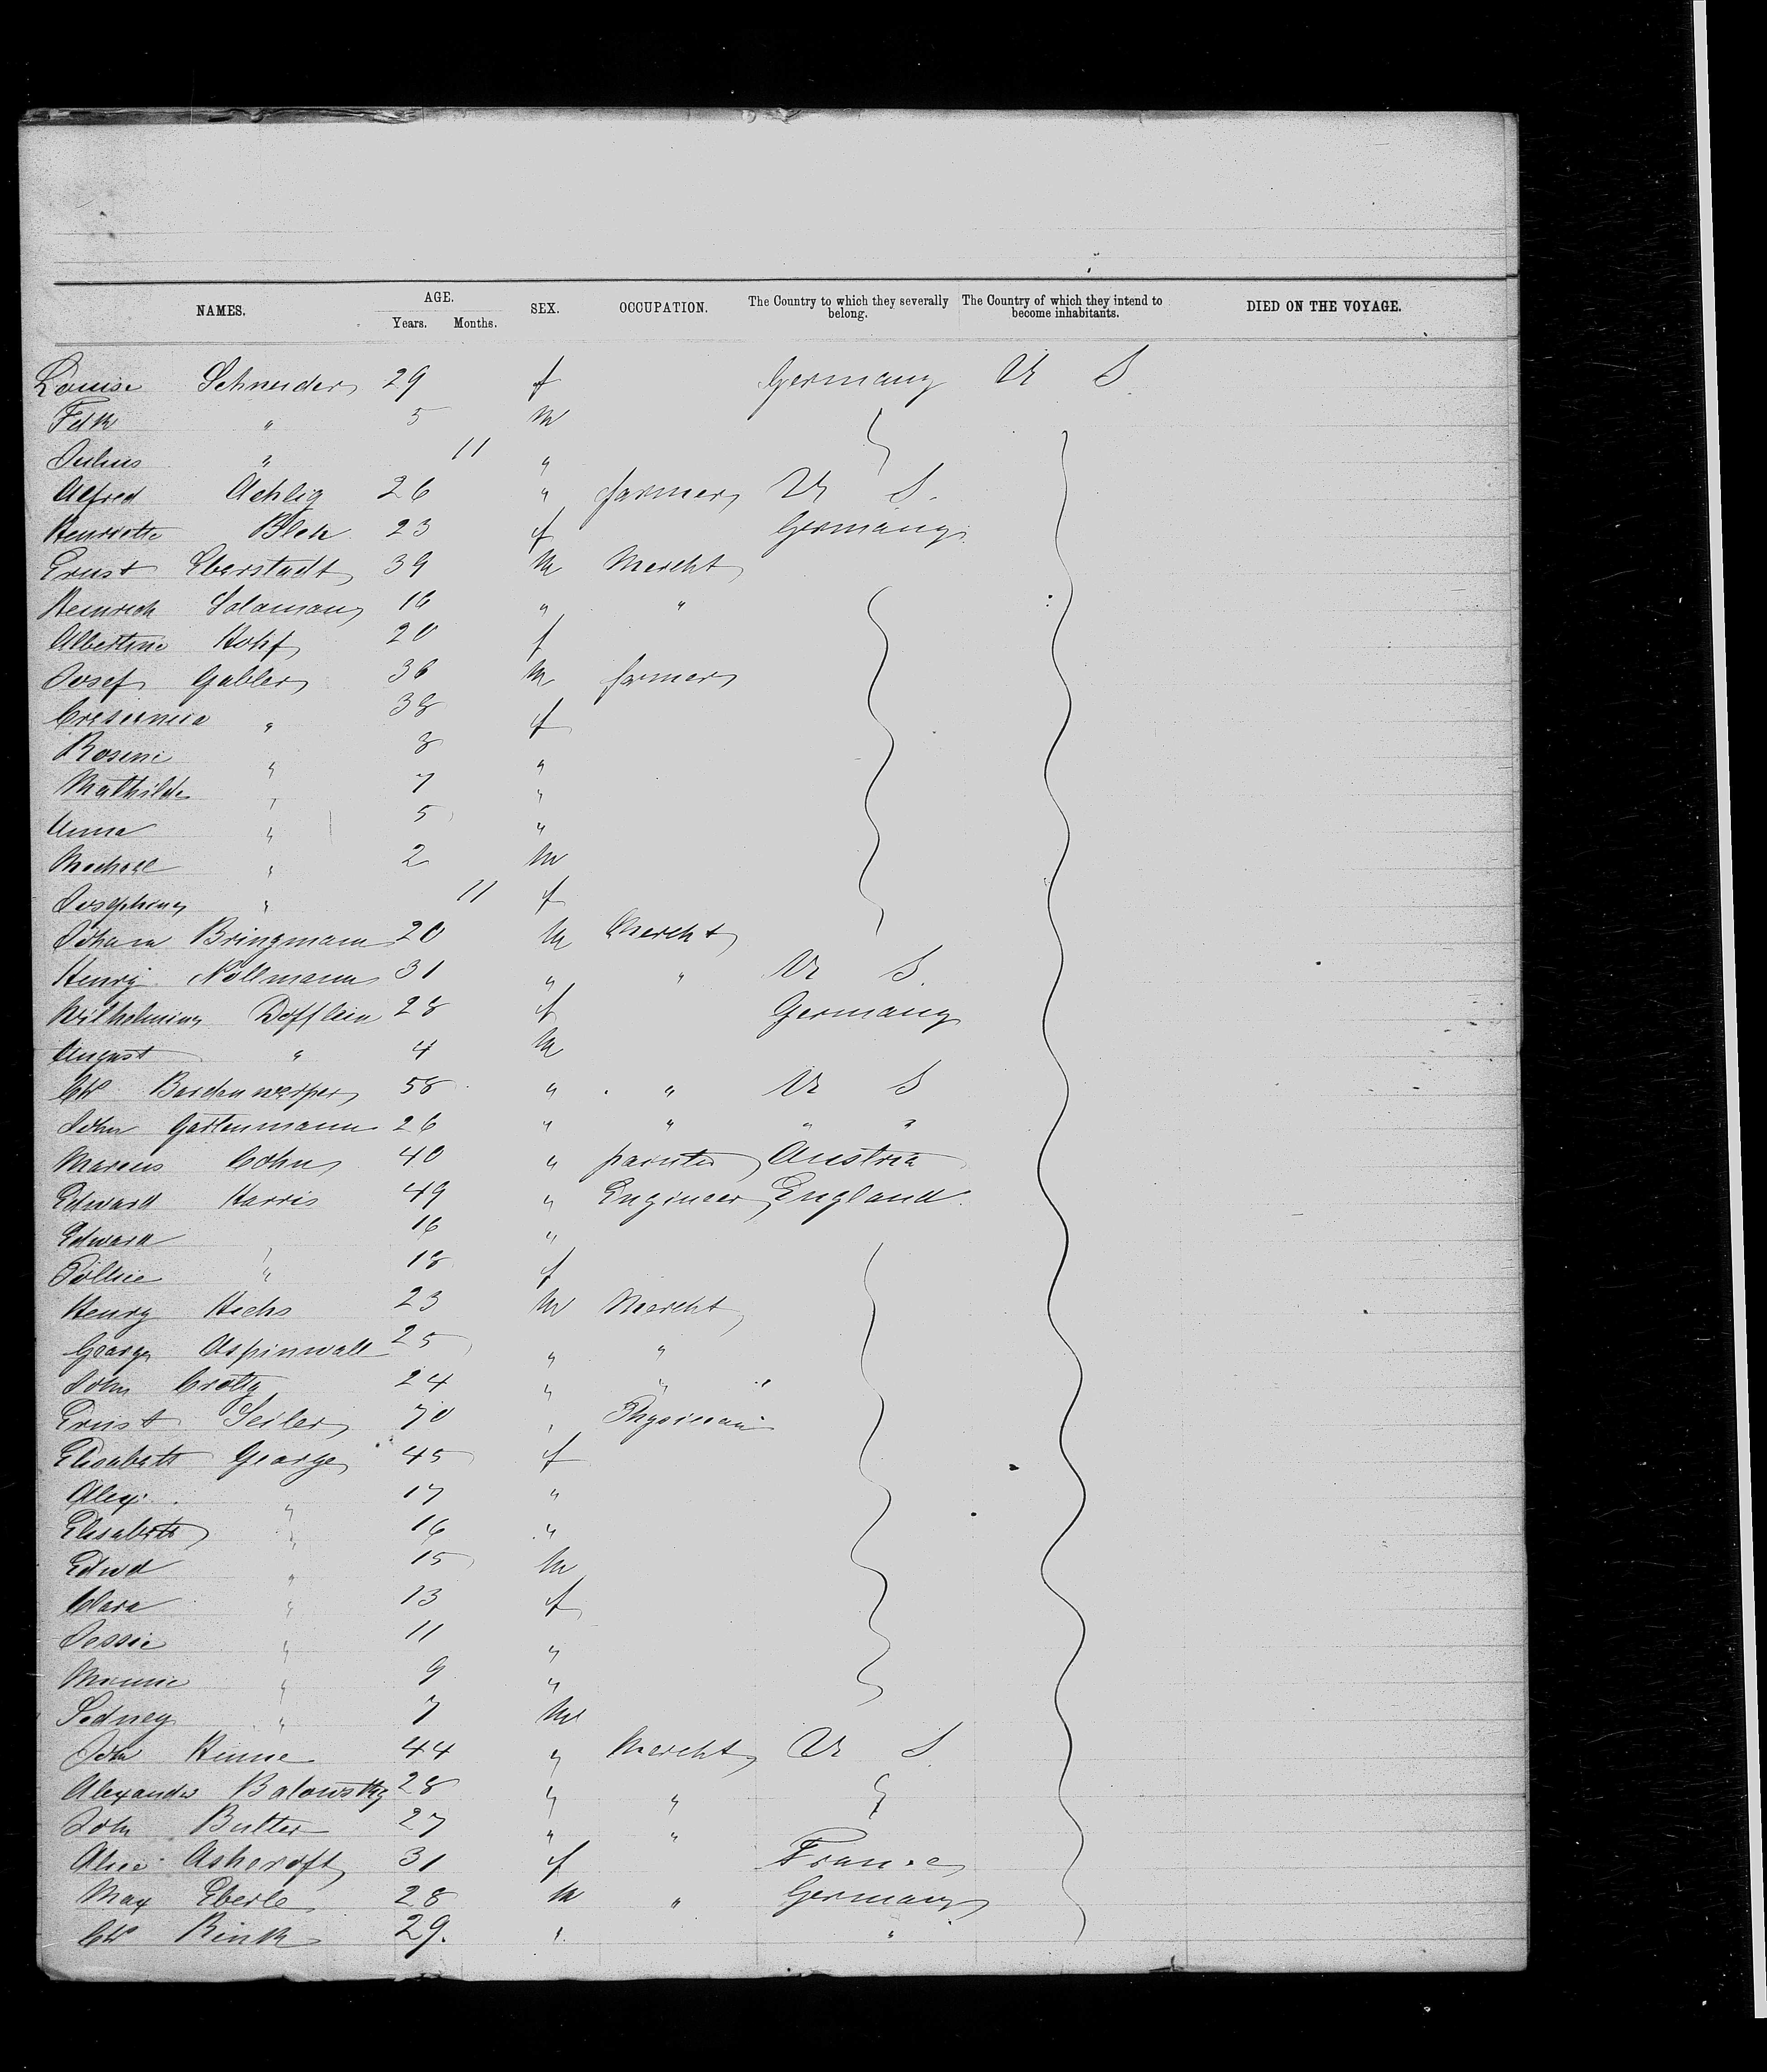 NAMES. AGE. SEX. OCCUPATION. The Country to which they severally belong. The Country of which they intend to become inhabitants. DIED ON THE VOYAGE.
Years. Months.
Louise Schneider 29 f Germany U S.
Fdk " 5 m
Julius " 11 "
Alfred 26 " farmer U S.
Henriette Bleh 23 f Germany
Ernst Eberstadt 39 m Mercht
Heinrich Salamon 16 " "
Albertine Hopf 20 f
Josef Gabler 36 m farmer
" 38 f
Rosine " 8 "
Mathilde " 7 "
Anna " 5 "
Michael " 2 m
Josephine " 11 f
Johann Bringmann 20 m Mercht
Henry Nollmann 31 " " U S.
Wilhelmine Dofflein 28 f Germany
August " 4 m
Chr Bardenwerper 58 " " U S
John Gartenmann 26 " " " "
Marcus Cohn 40 " painter Austria
Edward Harris 49 " Engineer England.
Edward " 16 "
Pollie " 18 f
Henry Hichs 23 m Mercht
George Aspinwall 25 " "
John Crotty 24 " " "
Ernst Seiler 70 " Physician
Elisabeth George 45 f
Alex. " 17 "
Elisabeth " 16 "
Edwd " 15 m
Clara " 13 f
Jessie " 11 "
Minnie " 9 "
Sidney " 7 m
John Henne 44 " Mercht U S.
Alexander Balowsky 28 " "
John Butler 27 " "
Alice Ashcroft 31 f France
Max Eberle 28 m " Germany
Chr Rink 29. " "